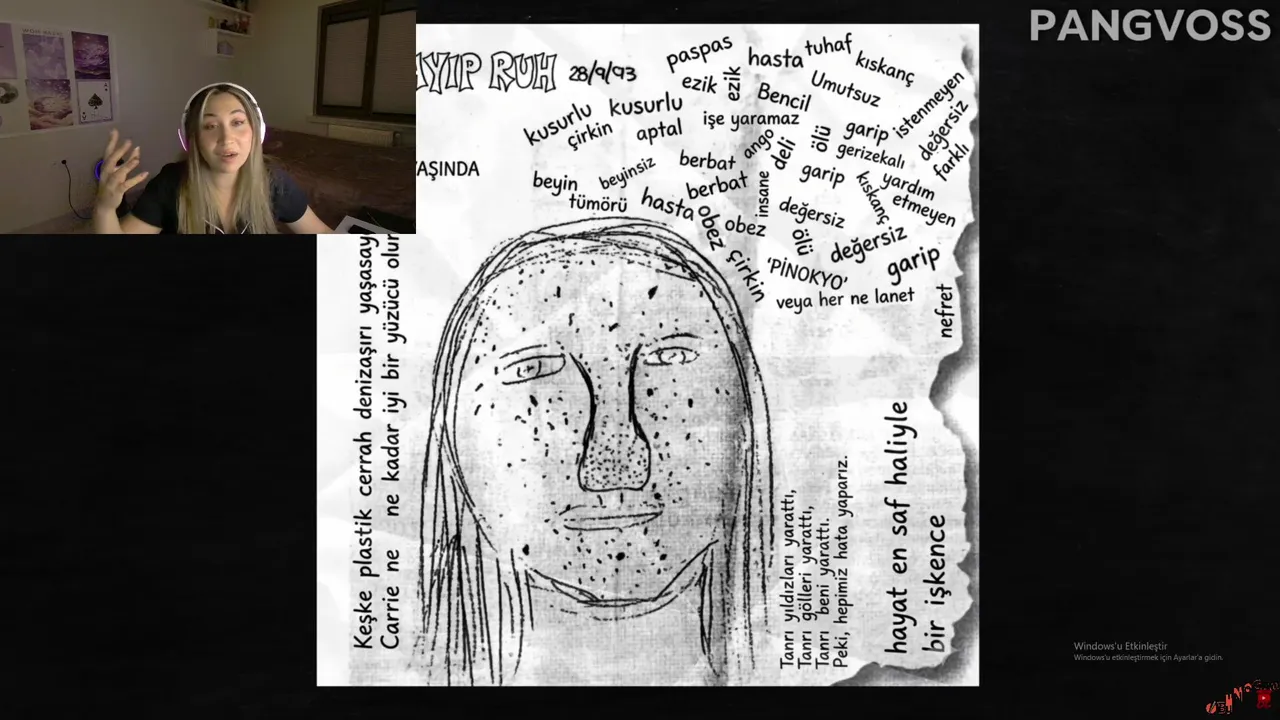 PANGVOSS
AYIP RUH 28/9/93
AŞINDA
paspas
hasta
tuhaf
kıskanç
ezik
ezik
Bencil
Umutsuz
istenmeyen
kusurlu
kusurlu
çirkin
aptal
işe yaramaz
ango
deli
ölü
garip
gerizekalı
değersiz
farklı
beyin
tümörü
beyinsiz
berbat
berbat
garip
kıskanç
yardım
etmeyen
hasta
obez
obez
insane
değersiz
ölü
değersiz
garip
çirkin
'PİNOKYO'
veya her ne lanet
nefret
Keşke plastik cerrah denizaşırı yaşasay
Carrie ne ne kadar iyi bir yüzücü olur
Tanrı yıldızları yarattı,
Tanrı gölleri yarattı,
Tanrı beni yarattı.
Peki, hepimiz hata yaparız.
hayat en saf haliyle
bir işkence
Windows'u Etkinleştir
Windows'u etkinleştirmek için Ayarlar'a gidin.